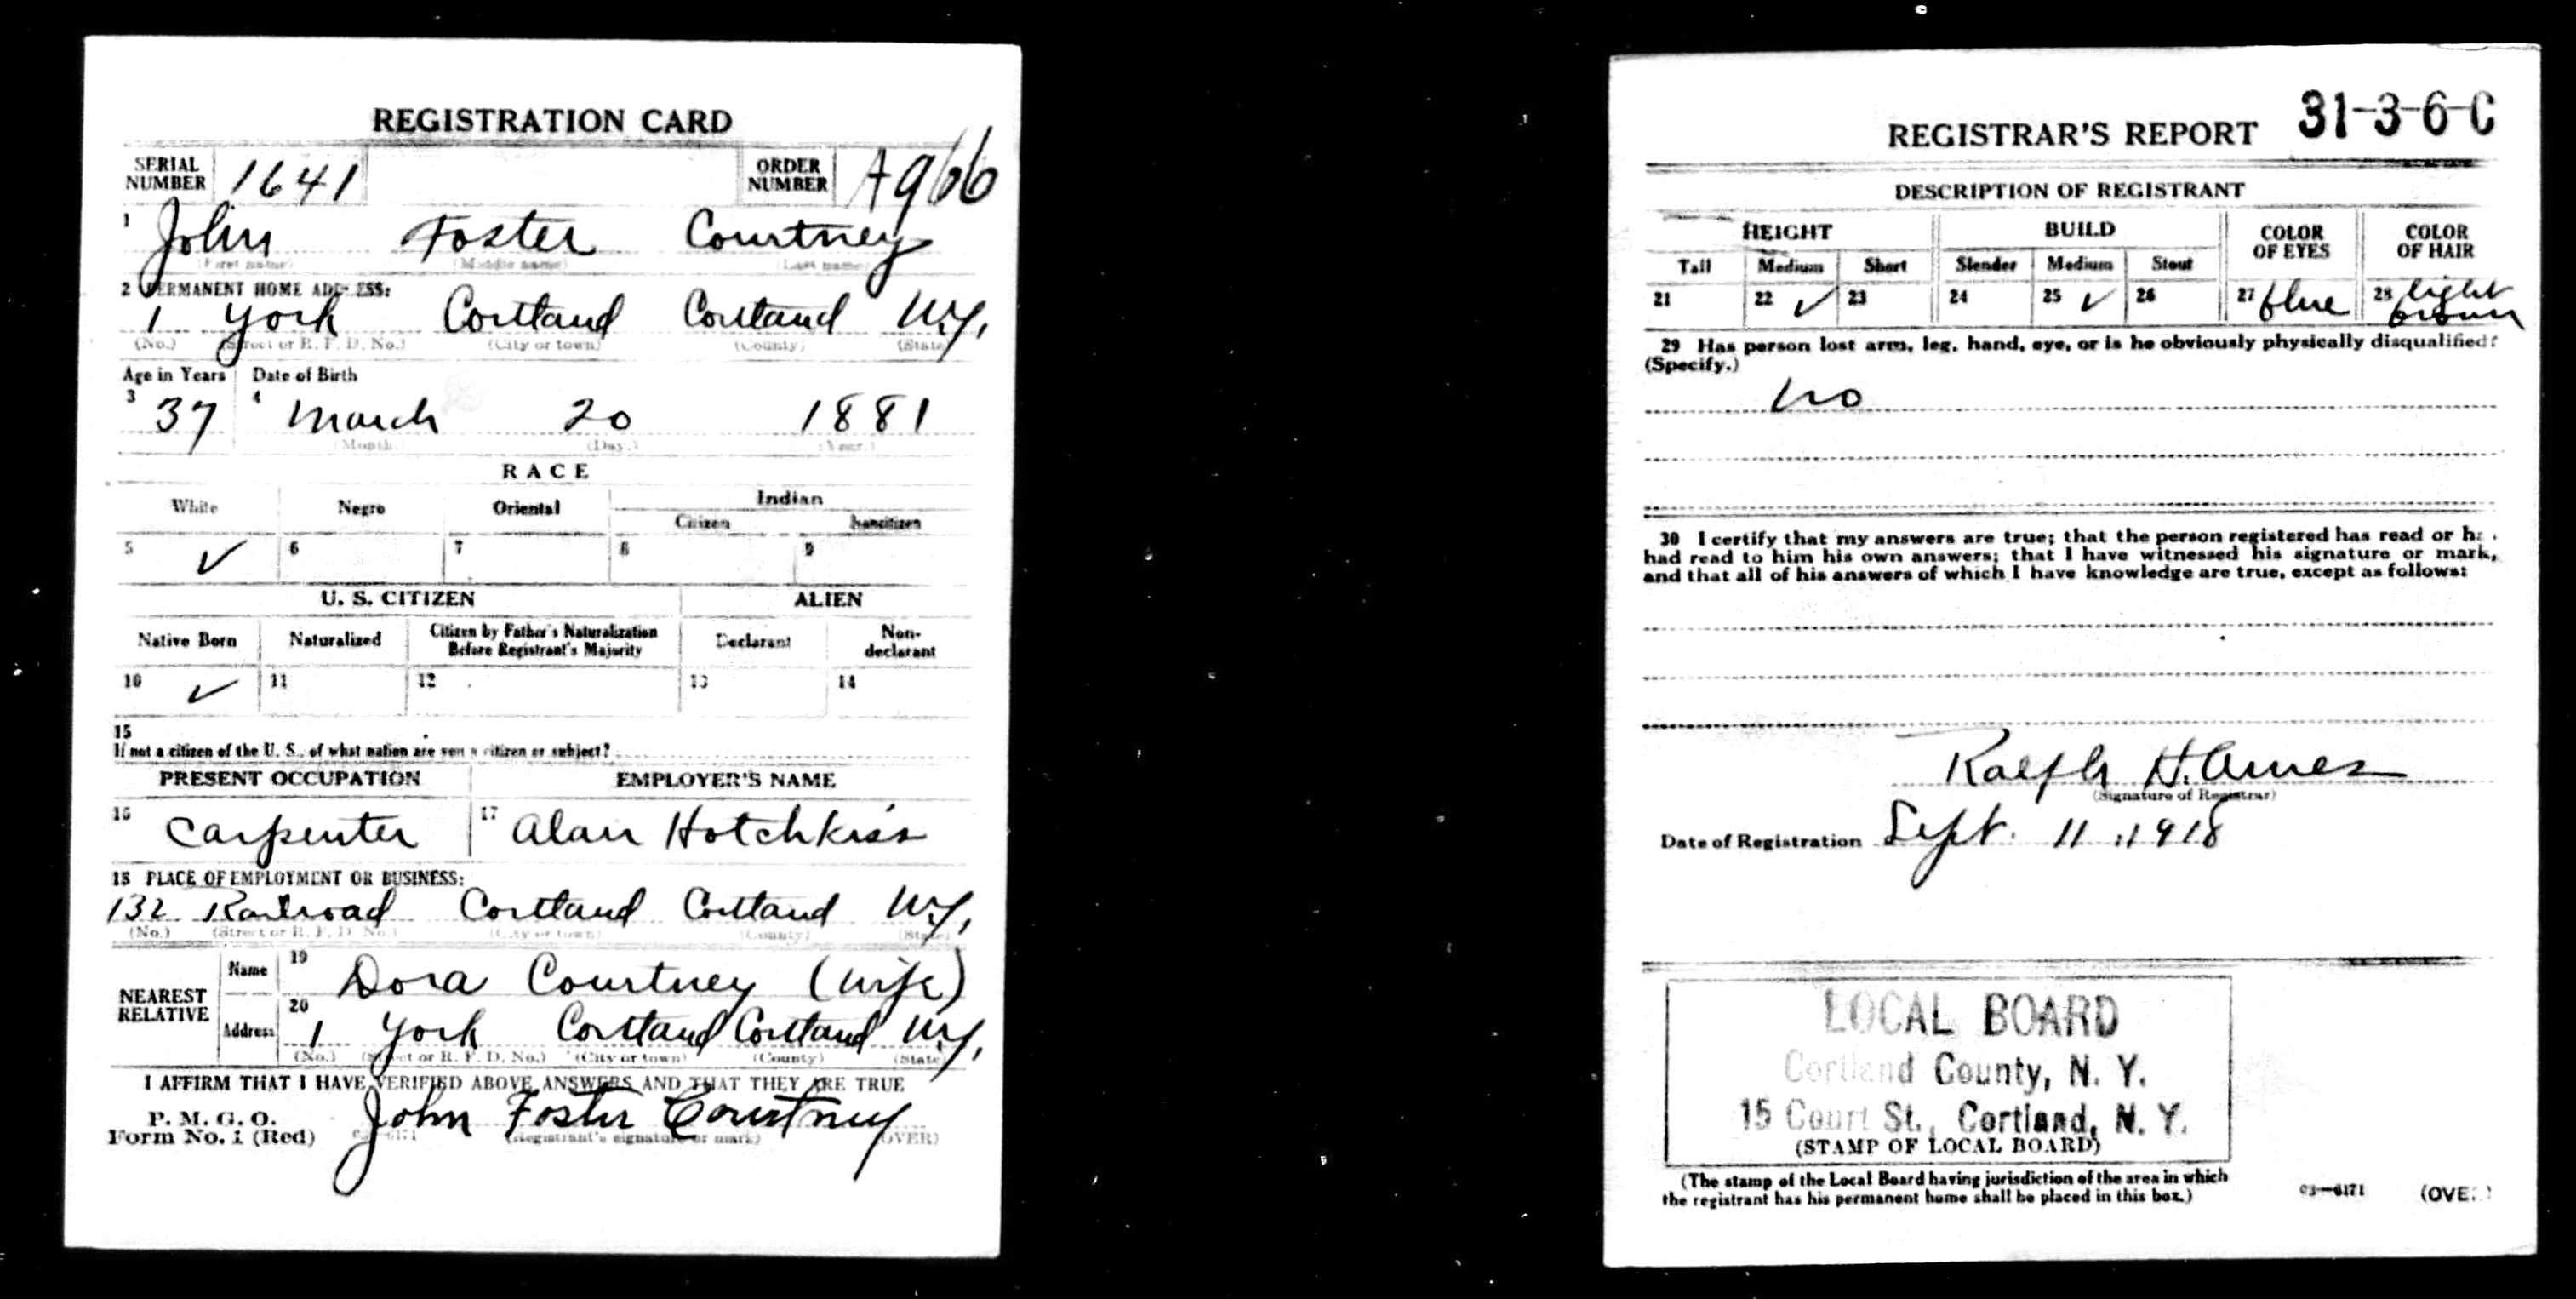 REGISTRATION CARD
SERIAL NUMBER 1641 ORDER NUMBER A966
1 John Foster Courtney
(First name) (Middle name) (Last name)
2 PERMANENT HOME ADDRESS:
1 York Cortland Cortland N.Y.
(No.) (Street or R. F. D. No.) (City or town) (County) (State)
Age in Years Date of Birth
3 37 4 March 20 1881
(Month.) (Day.) (Year.)
RACE
White Negro Oriental Indian
Citizen Noncitizen
5 ✓ 6 7 8 9
U. S. CITIZEN ALIEN
Native Born Naturalized Citizen by Father's Naturalization Before Registrant's Majority Declarant Non-declarant
10 ✓ 11 12 13 14
15
If not a citizen of the U. S., of what nation are you a citizen or subject?
PRESENT OCCUPATION EMPLOYER'S NAME
16 Carpenter 17 Alan Hotchkiss
18 PLACE OF EMPLOYMENT OR BUSINESS:
132 Railroad Cortland Cortland N.Y.
(No.) (Street or R. F. D. No.) (City or town) (County) (State)
NEAREST RELATIVE
Name 19 Dora Courtney (wife)
Address 20 1 York Cortland Cortland N.Y.
(No.) (Street or R. F. D. No.) (City or town) (County) (State)
I AFFIRM THAT I HAVE VERIFIED ABOVE ANSWERS AND THAT THEY ARE TRUE
P. M. G. O.
Form No. 1 (Red) John Foster Courtney
(Registrant's signature or mark) (OVER)
31-3-6-C
REGISTRAR'S REPORT
DESCRIPTION OF REGISTRANT
HEIGHT BUILD COLOR OF EYES COLOR OF HAIR
Tall Medium Short Slender Medium Stout
21 22 ✓ 23 24 25 ✓ 26 27 blue 28 light brown
29 Has person lost arm, leg, hand, eye, or is he obviously physically disqualified?
(Specify.)
no
30 I certify that my answers are true; that the person registered has read or has
had read to him his own answers; that I have witnessed his signature or mark,
and that all of his answers of which I have knowledge are true, except as follows:
Ralph H. Ames
(Signature of Registrar)
Date of Registration Sept. 11, 1918
LOCAL BOARD
Cortland County, N. Y.
15 Court St., Cortland, N. Y.
(STAMP OF LOCAL BOARD)
(The stamp of the Local Board having jurisdiction of the area in which
the registrant has his permanent home shall be placed in this box.)
03—6171 (OVER)